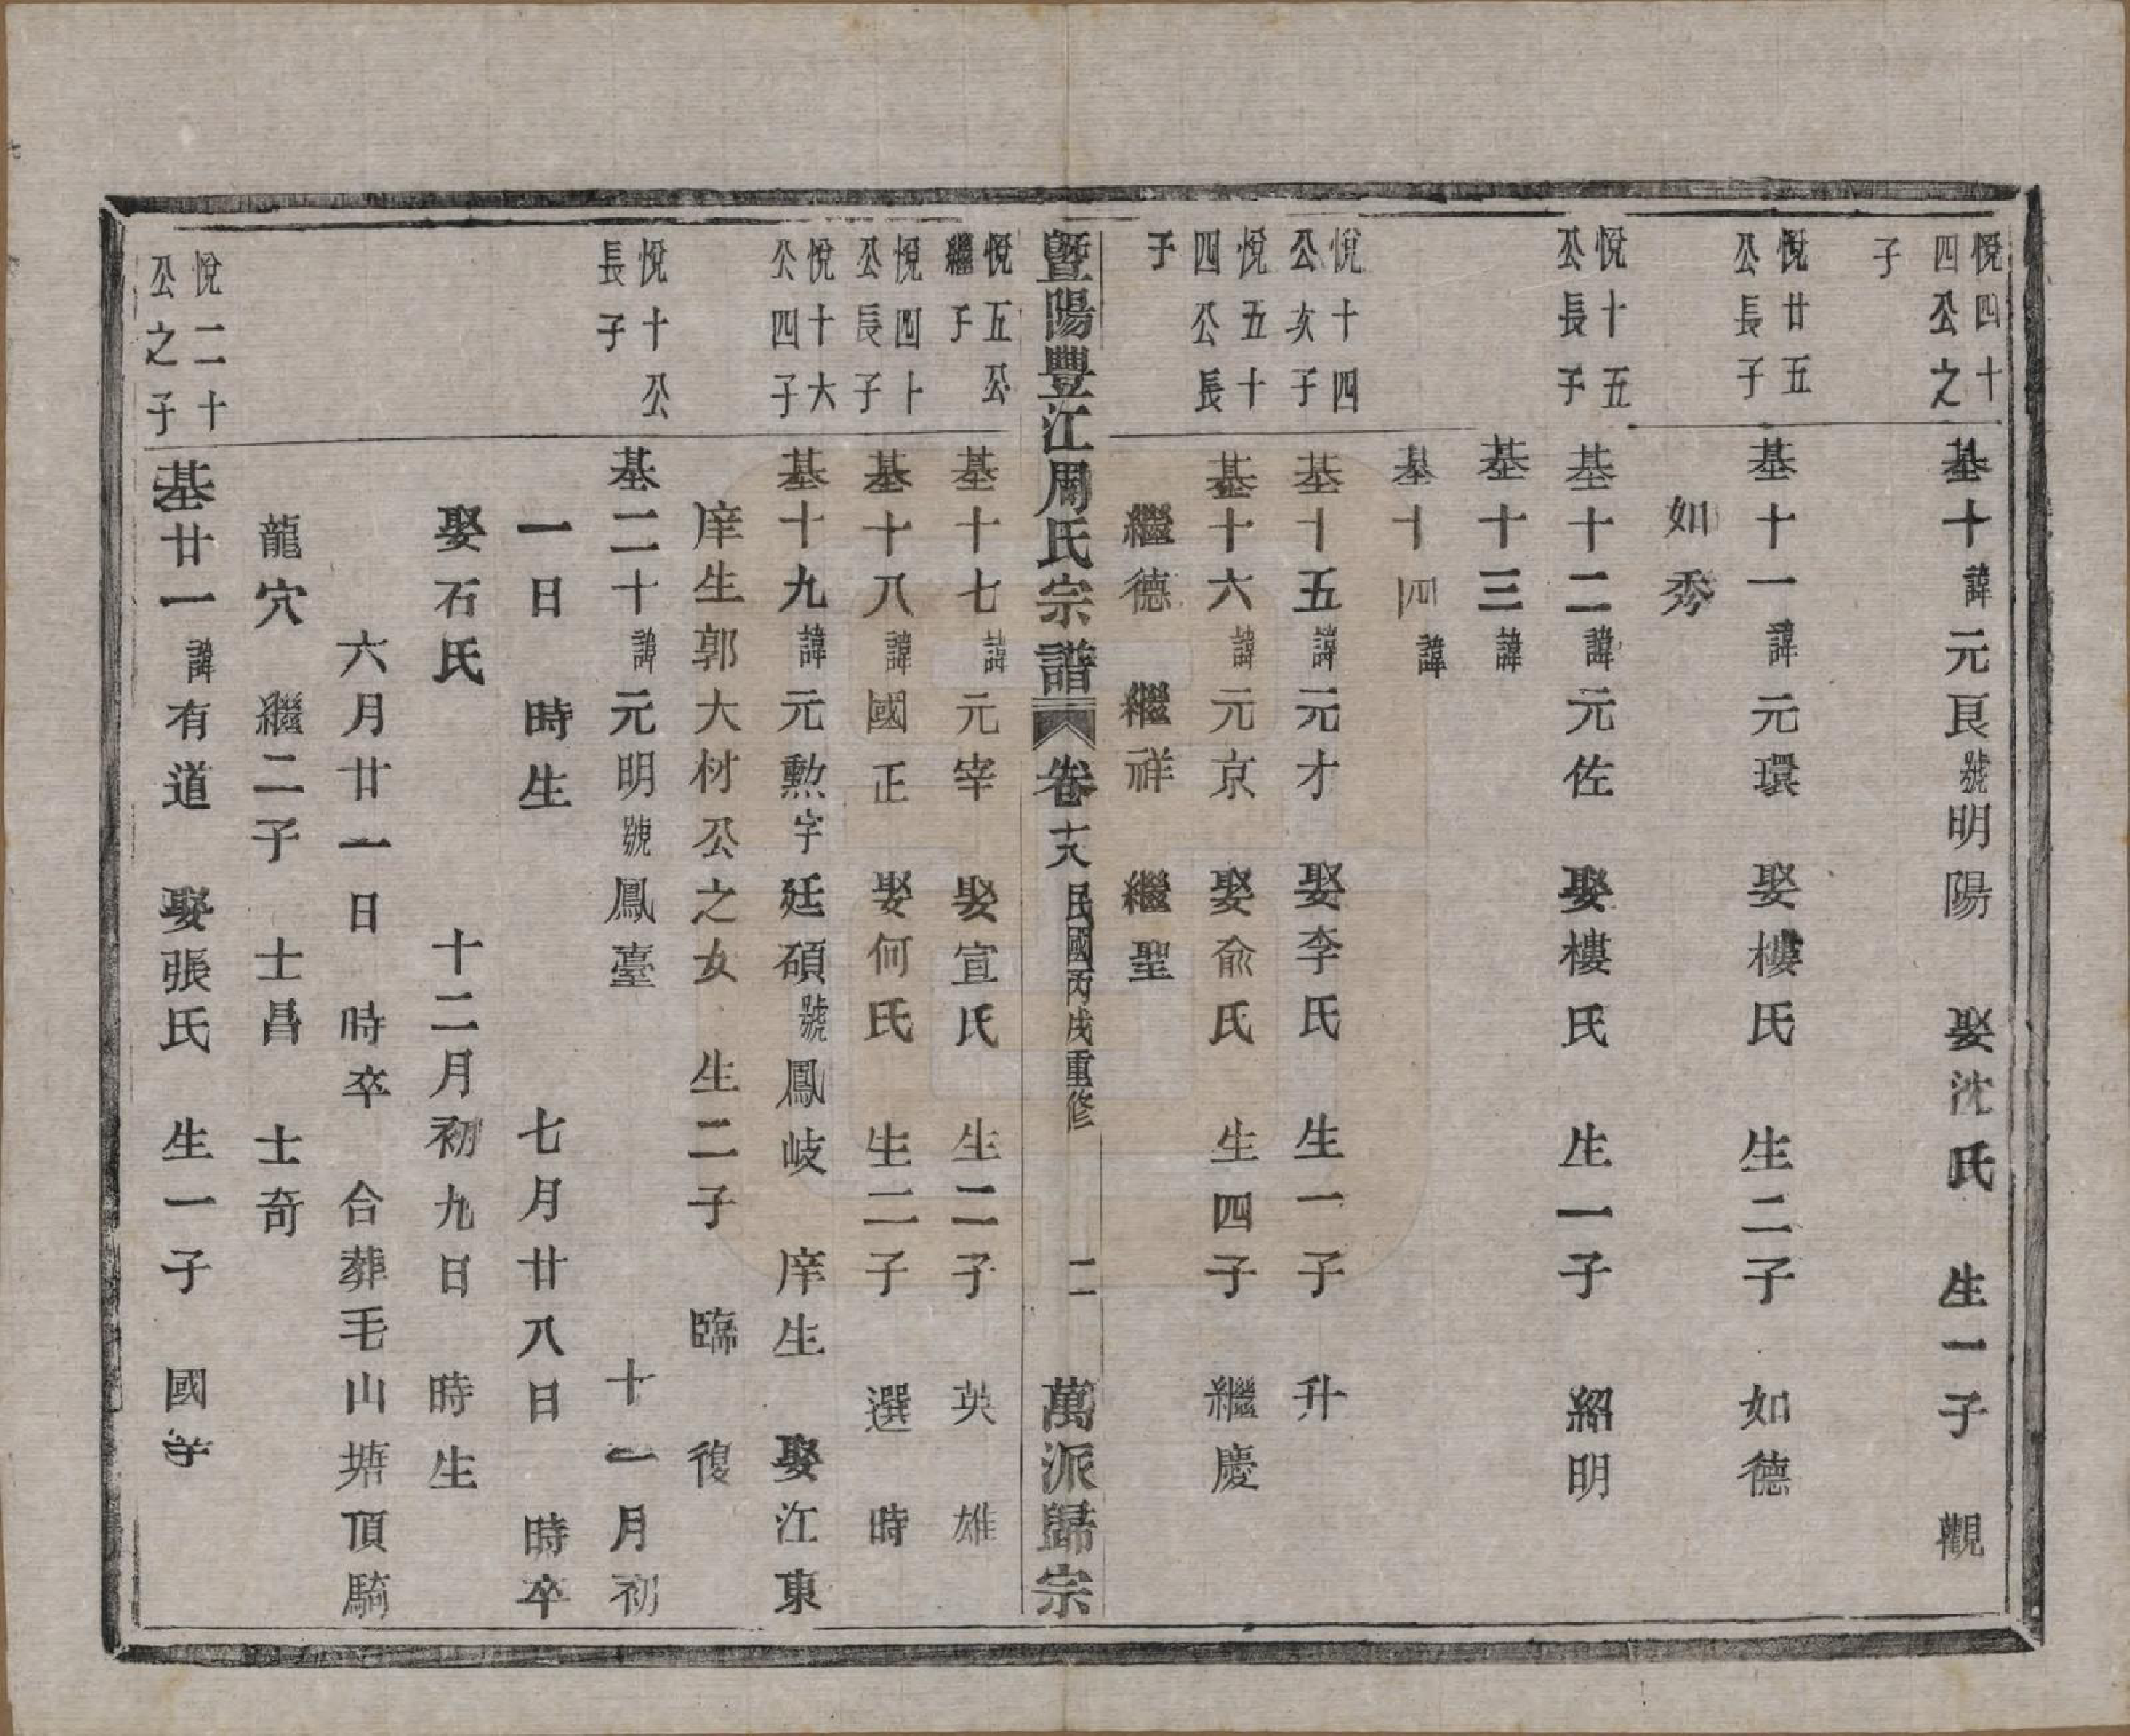 悅四十
四公之
子
基十諱元良號明陽　娶沈氏　生一子　觀
悅廿五
公長子
基十一諱元環　娶樓氏　生二子　如德
如秀
悅十五
公長子
基十二諱元佐　娶樓氏　生一子　紹明
基十三諱
基十四諱
悅十四
公次子
基十五諱元才　娶李氏　生一子　升
悅五十
四公長
子
基十六諱元京　娶俞氏　生四子　繼慶
繼德　繼祥　繼聖
暨陽豐江周氏宗譜　卷十八　民國丙戌重修　二　萬派歸宗
悅五公
繼子
基十七諱元宰　娶宣氏　生二子　英　雄
悅四卜
公長子
基十八諱國正　娶何氏　生二子　選　時
悅十大
公四子
基十九諱元勲字廷碩號鳳岐　庠生　娶江東
庠生郭大材公之女　生二子　臨　復
悅十公
長子
基二十諱元明號鳳臺　十一月初
一日　時生　七月廿八日　時卒
娶石氏　十二月初九日　時生
六月廿一日　時卒　合葬毛山塘頂騎
龍穴　繼二子　士昌　士奇
悅二十
公之子
基廿一諱有道　娶張氏　生一子　國